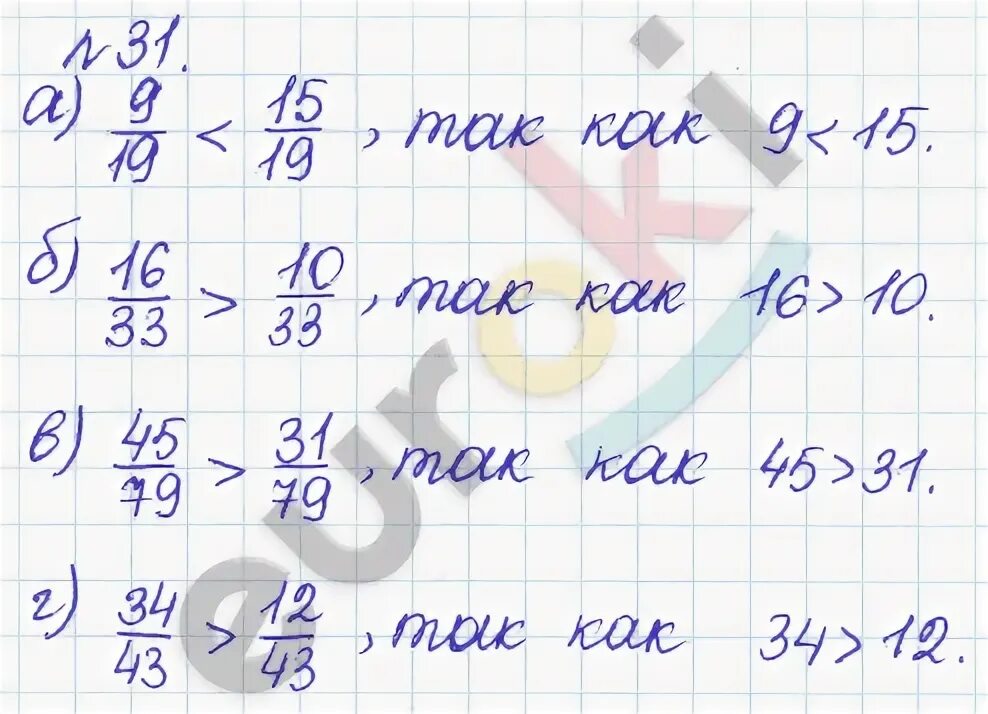 №31.
а) 9/19 < 15/19, так как 9 < 15.
б) 16/33 > 10/33, так как 16 > 10.
в) 45/79 > 31/79, так как 45 > 31.
г) 34/43 > 12/43, так как 34 > 12.
euroki